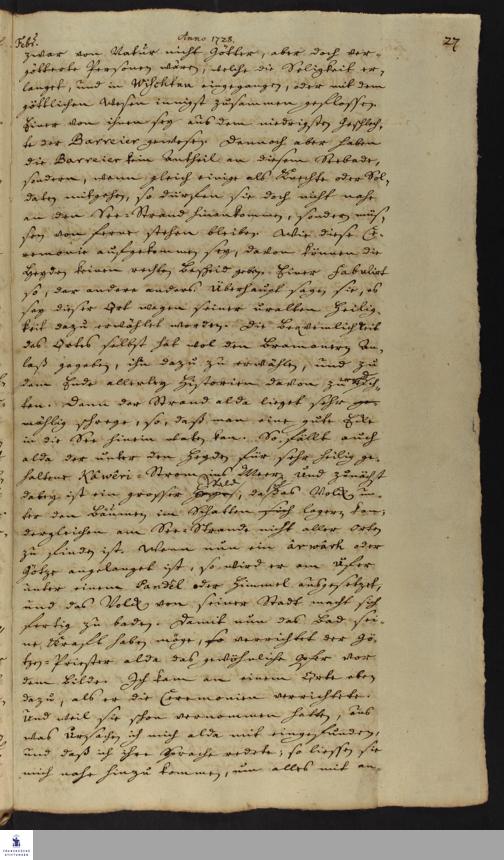 Febr. Anno 1728. 27
zwar von Natur nicht Götter, aber doch ver-
götterte Personen wären, welche die Seligkeit er-
langet, und in Wischtnu eingegangen, oder mit dem
göttlichen Wesen innigst zusammen geflossen.
Einer von ihnen sey aus dem niedrigsten Geschlech-
te der Barreier gewesen. Dennoch aber haben
die Barreier kein Antheil an diesem Seebade,
sondern, wenn gleich einige als Knechte oder Sol-
daten mitgehen, so dürfen sie doch nicht nahe
an den See-Strand hinankommen, sondern müs-
sen von ferne stehen bleiben. Wie diese Ce-
remonie aufgekommen sey, davon können die
Heyden keinen rechten Bescheid geben. Einer fabulirt
so, der andere anders. Überhaupt sagen sie, es
sey dieser Ort wegen seiner uralten Heilig-
keit dazu erwählet worden. Die Bequemlichkeit
des Ortes selbst hat wol den Bramanern An-
laß gegeben, ihn dazu zu erwählen, und zu
dem Ende allerley Historien davon zu
ten. Denn der Strand alda lieget sehr
mählig schrege, so, daß man eine gute Ecke
in die See hinein waten kan. So fällt auch
alda der unter den Heyden für sehr heilig ge-
haltene Kåwêri-Strom ins Meer. Und zunächst
dabey ist ein grosser Wald, da das Volck un-
ter den Bäumen im Schatten sich lagern kan,
dergleichen am See-Strande nicht aller Orten
zu finden ist. Wenn nun ein oder
Götze angelanget ist, so wird er am Ufer
unter einem Pandel oder Himmel ausgesetzet,
und das Volck von seiner Stadt macht sich
fertig zu baden. Damit nun das Bad sei-
ne Krafft haben möge, so verrichtet der Gö-
tzen-Priester alda das gewöhnliche Opfer vor
dem Bilde. Ich kam an einem Orte eben
dazu, als er die Ceremonien verrichtete.
Und weil sie schon vernommen hatten, aus
was Ursachen ich mich alda mit eingefunden,
und daß ich ihre Sprache redete; so liessen sie
mich nahe hinzu kommen, um alles mit an-